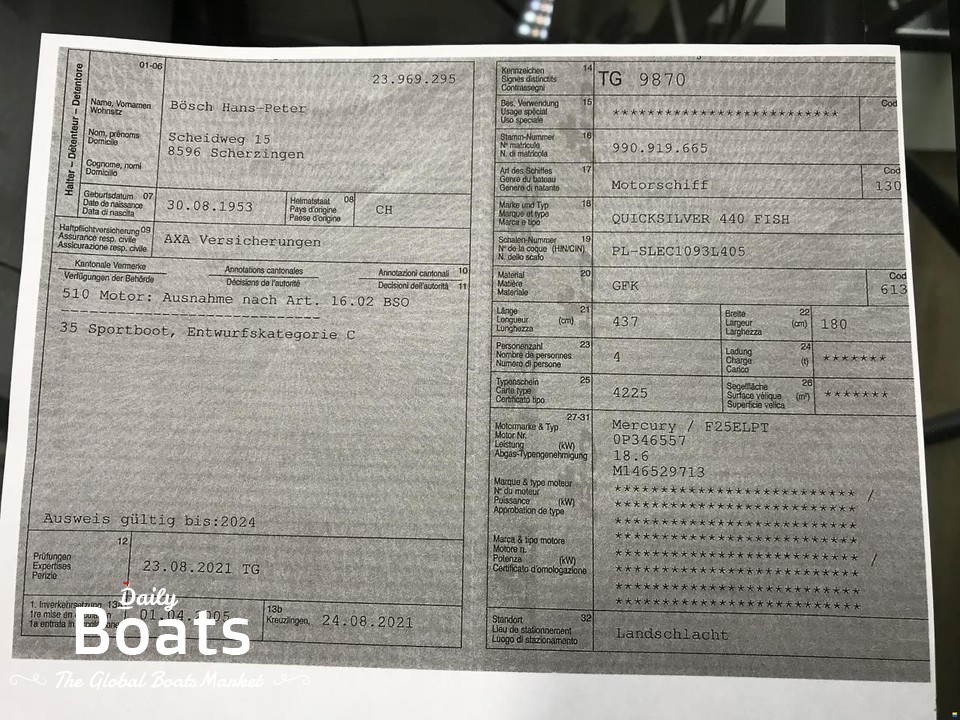 Halter – Détenteur – Detentore
01-06
23.969.295
Name, Vornamen
Wohnsitz
Bösch Hans-Peter
Nom, prénoms
Domicile
Scheidweg 15
8596 Scherzingen
Cognome, nomi
Domicilio
Geburtsdatum 07
Date de naissance
Data di nascita
30.08.1953
Heimatstaat 08
Pays d'origine
Paese d'origine
CH
Haftpflichtversicherung 09
Assurance resp. civile
Assicurazione resp. civile
AXA Versicherungen
Kantonale Vermerke Annotations cantonales Annotazioni cantonali 10
Verfügungen der Behörde Décisions de l'autorité Decisioni dell'autorità 11
510 Motor: Ausnahme nach Art. 16.02 BSO
------------------------------
35 Sportboot, Entwurfskategorie C
Ausweis gültig bis:2024
12
Prüfungen
Expertises
Perizie
23.08.2021 TG
1. Inverkehrsetzung 13a
1re mise en
1a entrata in
01.04. 005
13b
Kreuzlingen, 24.08.2021
Kennzeichen 14
Signes distinctifs
Contrassegni
TG 9870
Bes. Verwendung 15
Usage spécial
Uso speciale
*************************
Cod
Stamm-Nummer 16
N° matricule
N. di matricola
990.919.665
Art des Schiffes 17
Genre du bateau
Genere di natante
Motorschiff
Cod
130
Marke und Typ 18
Marque et type
Marca e tipo
QUICKSILVER 440 FISH
Schalen-Nummer 19
N° de la coque (HIN/CIN)
N. dello scafo
PL-SLEC1093L405
Material 20
Matière
Materiale
GFK
Cod
613
Länge 21
Longueur (cm)
Lunghezza
437
Breite 22
Largeur (cm)
Larghezza
180
Personenzahl 23
Nombre de personnes
Numero di persone
4
Ladung 24
Charge (t)
Carico
*******
Typenschein 25
Carte type
Certificato tipo
4225
Segelfläche 26
Surface vélique (m²)
Superficie velica
*******
27-31
Motormarke & Typ
Motor Nr.
Leistung (kW)
Abgas-Typengenehmigung
Mercury / F25ELPT
0P346557
18.6
M146529713
Marque & type moteur
N° du moteur
Puissance (kW)
Approbation de type
************************** /
**************************
**************************
**************************
Marca & tipo motore
Motore n.
Potenza (kW)
Certificato d'omologazione
************************** /
**************************
**************************
**************************
Standort 32
Lieu de stationnement
Luogo di stazionamento
Landschlacht
Daily
Boats
The Global Boats Market